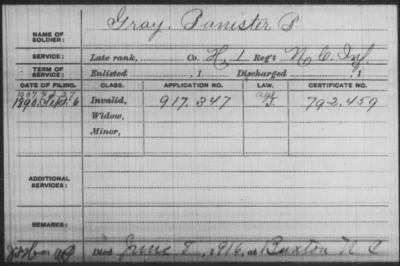 Gray, Banister P
NAME OF SOLDIER:
SERVICE: Late rank, Co. H, 1 Reg't N. C. Inf.
TERM OF SERVICE: Enlisted , 1 Discharged , 1
DATE OF FILING. CLASS. APPLICATION NO. LAW. CERTIFICATE NO.
1890. Sept. 6 Invalid, 917.347 792.459
Widow,
Minor,
ADDITIONAL SERVICES:
REMARKS:
Died June 8, 1916, at Buxton N C